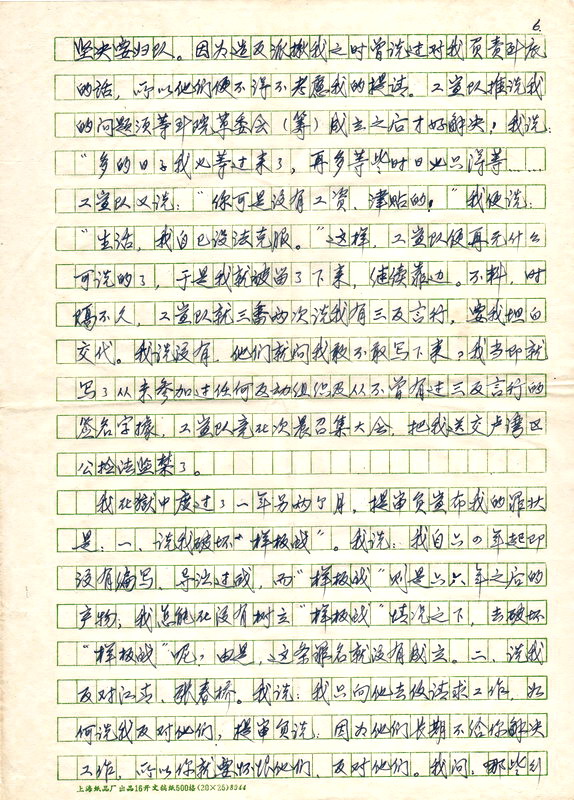 6.
坚决要归队。因为造反派揪我之时曾说过对我负责到底
的话，所以他们便不得不考虑我的提请。工宣队推说我
的问题须等到院革委会（筹）成立之后才好解决；我说：
“多的日子我也等过来了，再多等些时日也只得等……
工宣队又说：“你可是没有工资、津贴的！”我便说：
“生活，我自己设法克服。”这样，工宣队便再无什么
可说的了，于是我就被留了下来，继续靠边。不料，时
隔不久，工宣队就三番两次说我有三反言行，要我坦白
交代。我说没有，他们就问我敢不敢写下来？我当即就
写了从未参加过任何反动组织及从不曾有过三反言行的
签名字據，工宣队竟在次晨召集大会，把我送交卢湾区
公检法监禁了。
我在獄中度过了一年另两个月，提审员宣布我的罪状
是：一、说我破坏“样板戏”。我说：我自六〇年起即
没有编写、导演过戏，而“样板戏”则是六六年之后的
产物，我怎能在没有树立“样板戏”情况之下，去破坏
“样板戏”呢？由是，这条罪名就没有成立。二、说我
反对江青、张春桥。我说：我只向他去信请求工作，如
何说我反对他们？提审员说：因为他们长期不给你解决
工作，所以你就要怀恨他们，反对他们。我问：哪些到
上海纸品厂出品16开文稿纸500格(20×25)8344